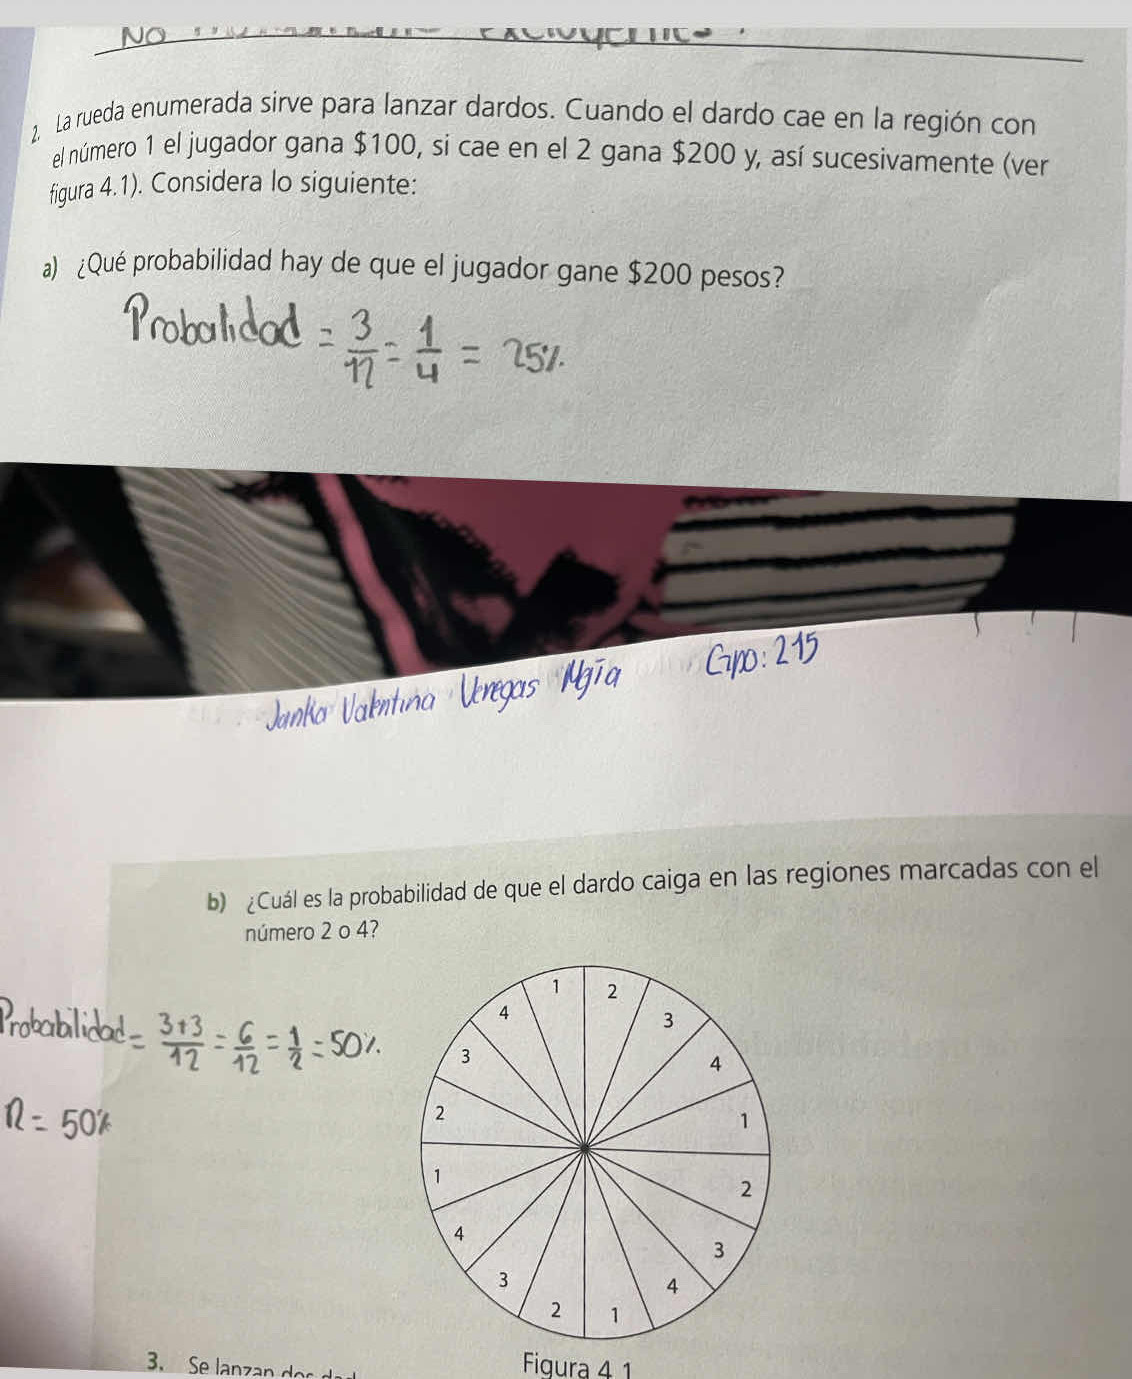 NO
2. La rueda enumerada sirve para lanzar dardos. Cuando el dardo cae en la región con
el número 1 el jugador gana $100, si cae en el 2 gana $200 y, así sucesivamente (ver
figura 4.1). Considera lo siguiente:
a) ¿Qué probabilidad hay de que el jugador gane $200 pesos?
Probalidad = 3/12 = 1/4 = 25%.
Valentina Gpo: 215
b) ¿Cuál es la probabilidad de que el dardo caiga en las regiones marcadas con el
número 2 o 4?
Probabilidad = 3+3/12 = 6/12 = 1/2 = 50%.
R = 50%
1 2
4 3
3 4
2 1
1 2
4 3
3 4
2 1
3. Se lanzan dos
Figura 4.1